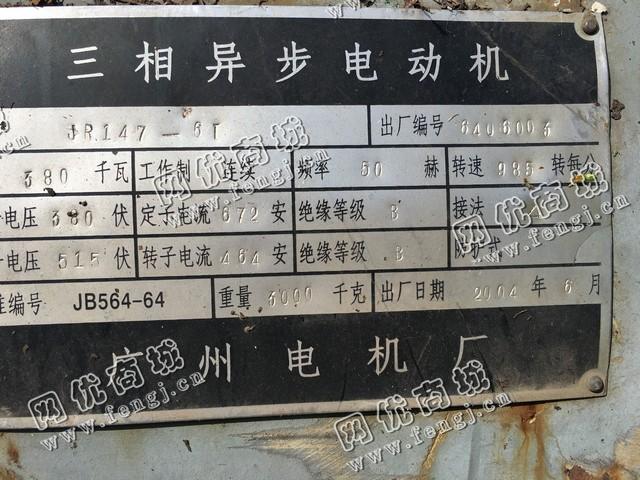 三相异步电动机
JR147-6T 出厂编号 6406003
380 千瓦 工作制 连续 频率 50 赫 转速 985 转每分
电压 380 伏 定子电流 672 安 绝缘等级 B 接法
电压 515 伏 转子电流 464 安 绝缘等级 B 防护式
准编号 JB564-64 重量 3000 千克 出厂日期 2004 年 6 月
广州电机厂
网优商城
www.fengj.cn
网优商城
www.fengj.cn
网优商城
www.fengj.cn
网优商城
www.fengj.cn
网优商城
www.fengj.cn